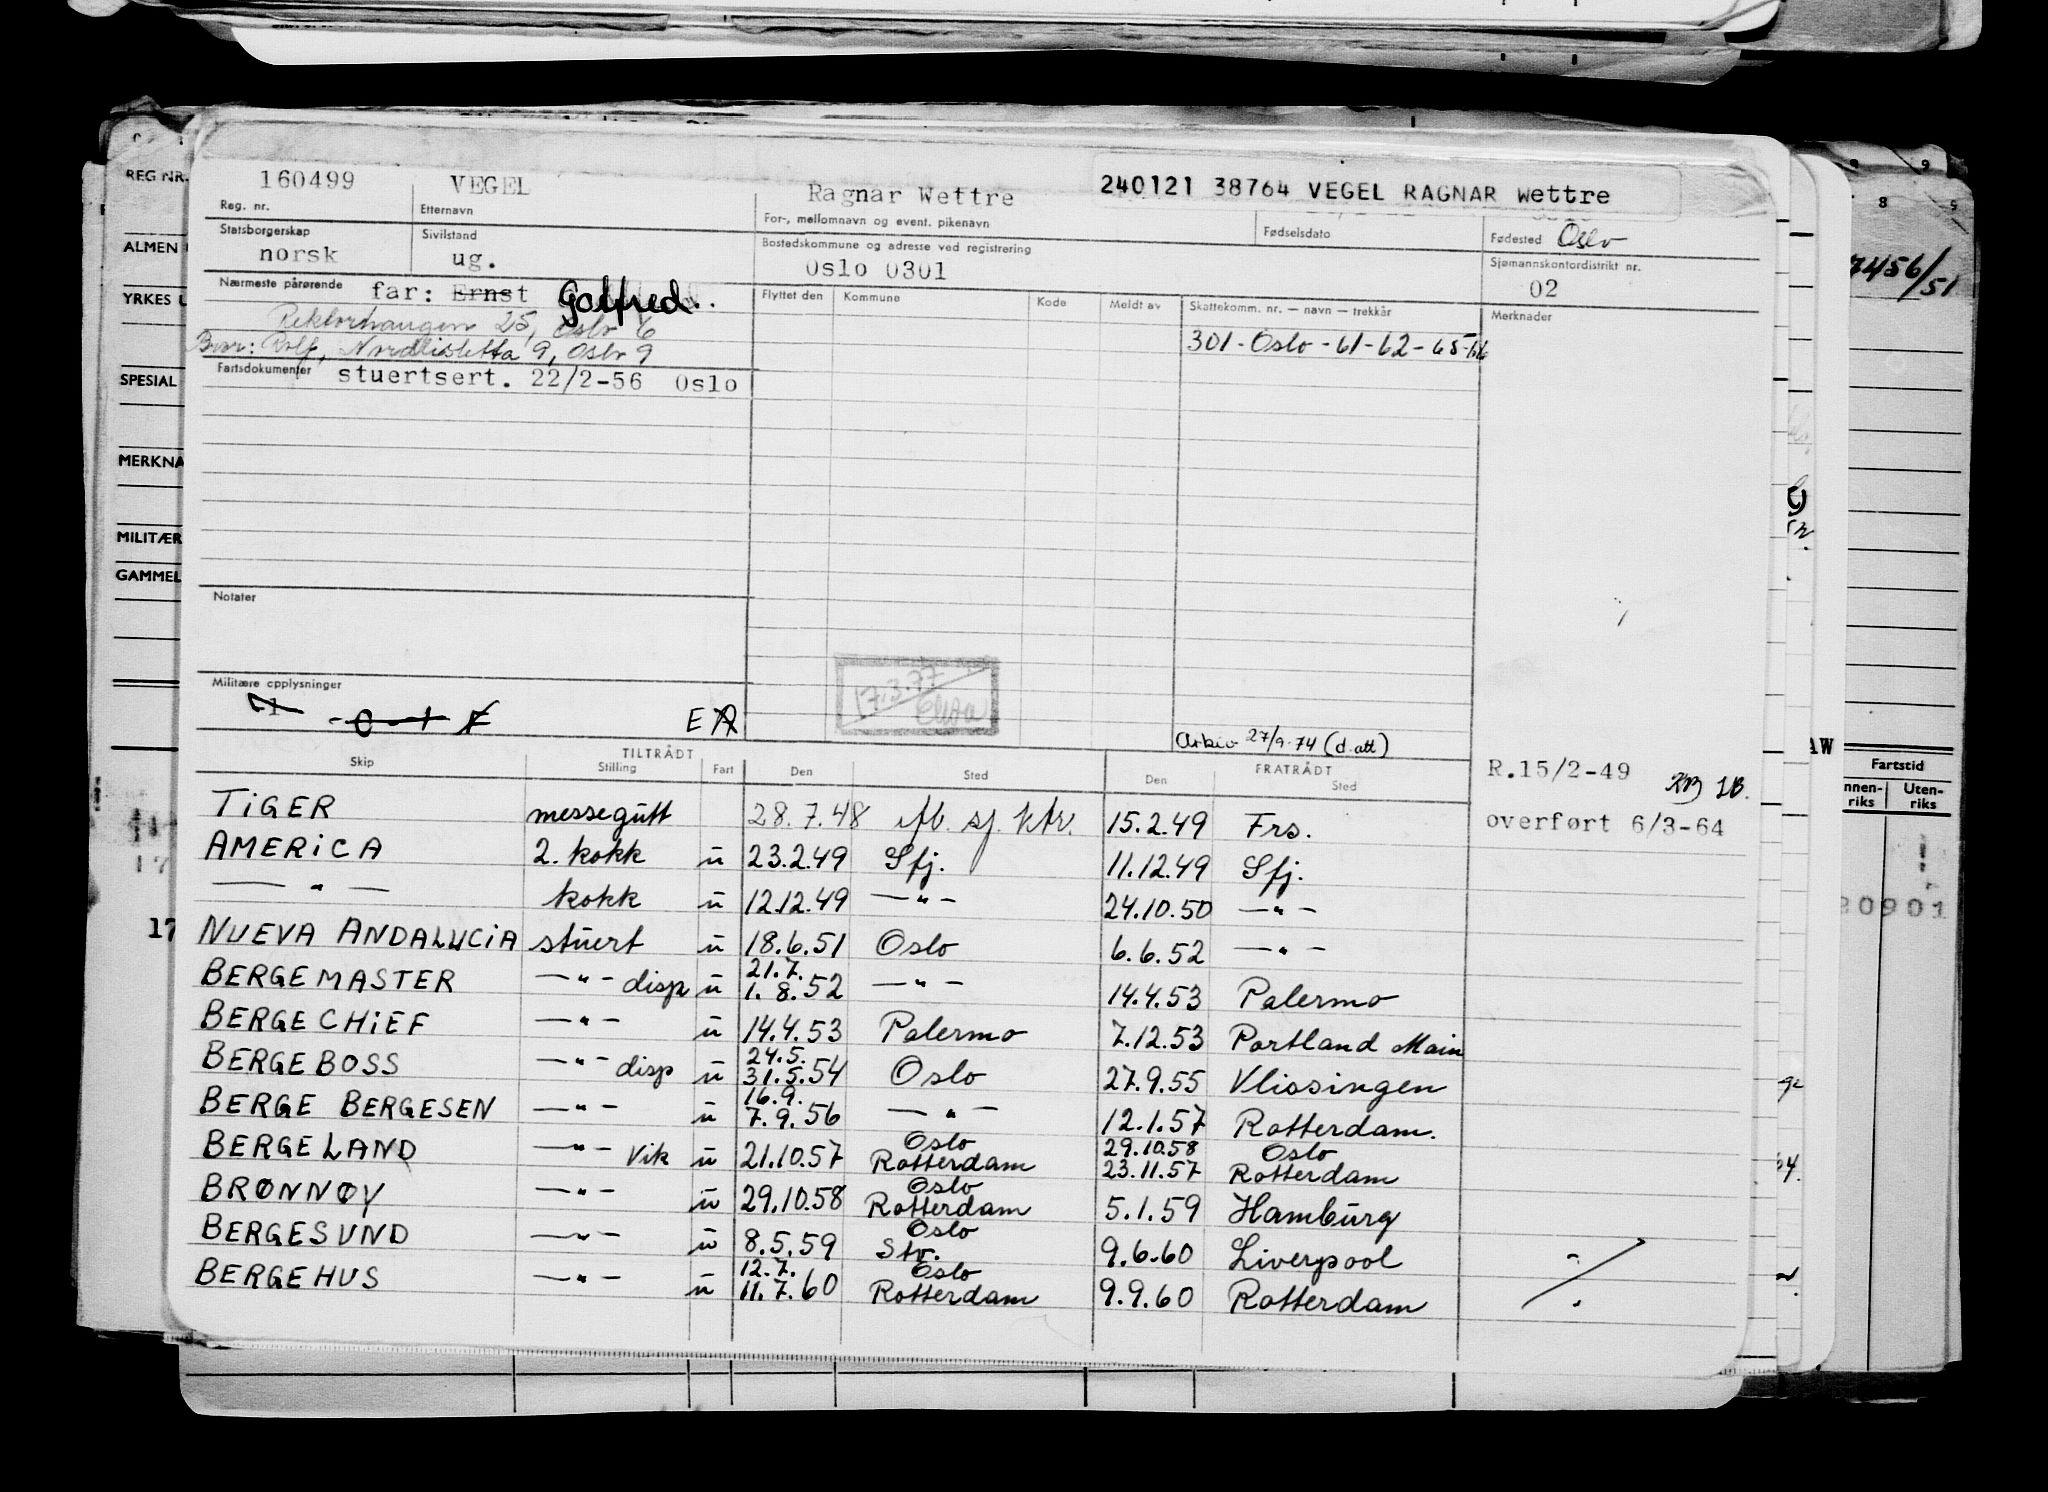 160499 VEGEL Ragnar Wettre 240121 38764 VEGEL RAGNAR Wettre
Reg. nr. Etternavn For-, mellomnavn og event. pikenavn Fødselsdato Fødested Oslo
Statsborgerskap Sivilstand Bostedskommune og adresse ved registrering Sjømannskontordistrikt nr.
norsk ug. Oslo 0301 02
Nærmeste pårørende far: Ernst Golfred. Flyttet den Kommune Kode Meldt av Skattekomm. nr. — navn — trekkår Merknader
Rektorhaugen 25, Oslo 6
Bror: Rolf, Nordlisletta 9, Oslo 9 301-Oslo-61-62-65-66
Fartsdokumenter stuertsert. 22/2-56 Oslo
Notater
Militære opplysninger
17.3.77
E A
Arkiv 27/9-74 (d.att)
TILTRÅDT FRATRÅDT
Skip Stilling Fart Den Sted Den Sted
R.15/2-49
overført 6/3-64
TIGER messegutt 28.7.48 ifb. sj. ktr. 15.2.49 Frs.
AMERICA 2. kokk u 23.2.49 Sfj. 11.12.49 Sfj.
— " — kokk u 12.12.49 — " — 24.10.50 — " —
NUEVA ANDALUCIA stuert u 18.6.51 Oslo 6.6.52 — " —
21.7.
BERGEMASTER — " — disp u 1.8.52 — " — 14.4.53 Palermo
BERGECHIEF — " — u 14.4.53 Palermo 7.12.53 Portland Main
24.5.
BERGEBOSS — " — disp u 31.5.54 Oslo 27.9.55 Vlissingen
16.9.
BERGE BERGESEN — " — u 7.9.56 — " — 12.1.57 Rotterdam.
Oslo 29.10.58 Oslo
BERGELAND — " — Vik u 21.10.57 Rotterdam 23.11.57 Rotterdam
Oslo
BRØNNØY — " — u 29.10.58 Rotterdam 5.1.59 Hamburg
Oslo
BERGESUND — " — u 8.5.59 Stv. 9.6.60 Liverpool
12.7. Oslo
BERGEHUS — " — u 11.7.60 Rotterdam 9.9.60 Rotterdam
REG NR.
ALMEN
YRKES
SPESIAL
MERKNA
MILITÆR
GAMMEL
17
8 9
7456/51
AW
Fartstid
Innen-riks Uten-riks
20901